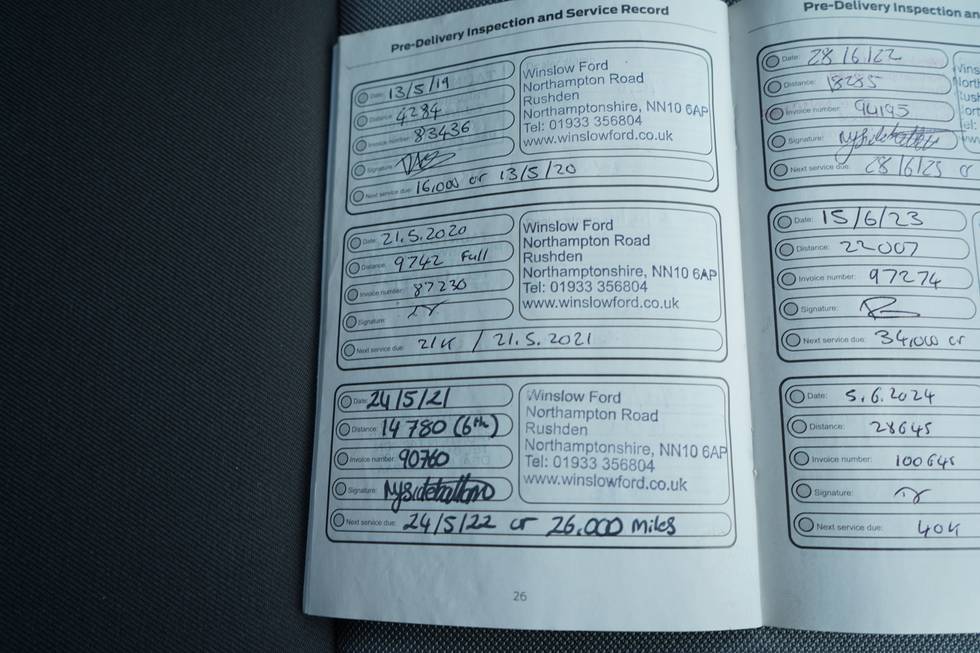 Pre-Delivery Inspection and Service Record
Date: 13/5/19
Distance: 4284
Invoice number: 83436
Signature:
Next service due: 16,000 or 13/5/20
Winslow Ford
Northampton Road
Rushden
Northamptonshire, NN10 6AP
Tel: 01933 356804
www.winslowford.co.uk
Date: 21.5.2020
Distance: 9742 Full
Invoice number: 87230
Signature:
Next service due: 21K / 21.5.2021
Winslow Ford
Northampton Road
Rushden
Northamptonshire, NN10 6AP
Tel: 01933 356804
www.winslowford.co.uk
Date: 24/5/21
Distance: 14780 (6th)
Invoice number: 90760
Signature:
Next service due: 24/5/22 or 26,000 miles
Winslow Ford
Northampton Road
Rushden
Northamptonshire, NN10 6AP
Tel: 01933 356804
www.winslowford.co.uk
26
Pre-Delivery Inspection an
Date: 28/6/22
Distance: 18285
Invoice number: 94195
Signature:
Next service due: 28/6/23 or
Date: 15/6/23
Distance: 22007
Invoice number: 97274
Signature:
Next service due: 34,000 or
Date: 5.6.2024
Distance: 28645
Invoice number: 100645
Signature:
Next service due: 40K